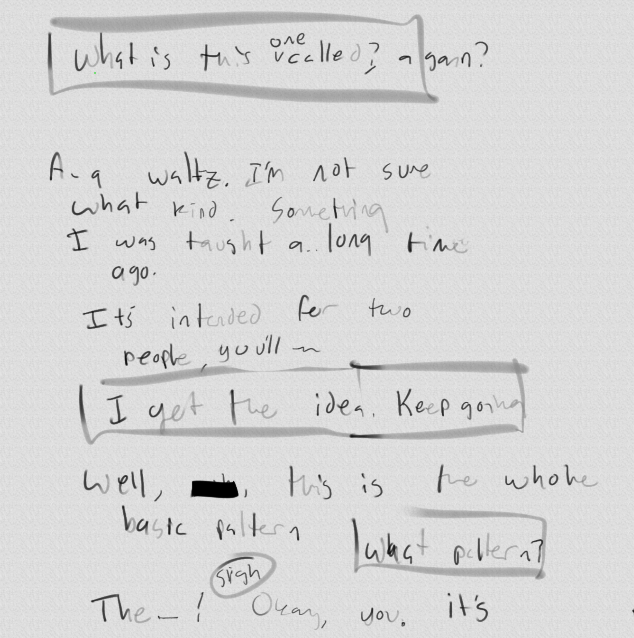 What is this one called? again?
A- a waltz. I'm not sure
what kind. Something
I was taught a.. long time
ago.
It's intended for two
people, you'll —
I get the idea. Keep going
Well, , this is the whole
basic pattern
What pattern?
sigh
The — ! Okay, you. it's